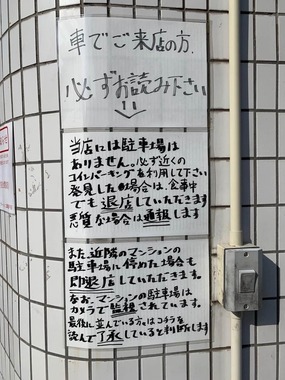 車でご来店の方、
必ずお読み下さい
当店には駐車場は
ありません。必ず近くの
コインパーキングを利用して下さい
発見した場合は、食事中
でも退店していただきます
悪質な場合は通報します
また、近隣のマンションの
駐車場に停めた場合も
即退店していただきます。
なお、マンションの駐車場は
カメラで監視されています。
最後に並んでいる方はコチラを
読んで了承していると判断します